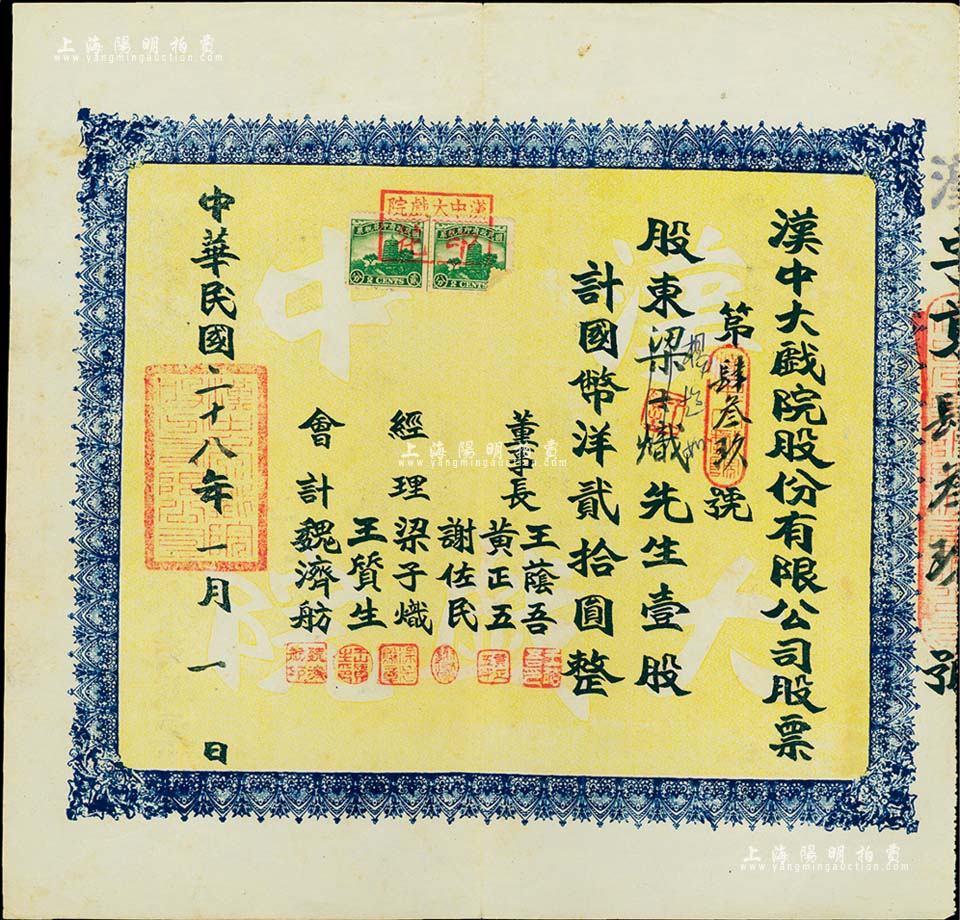 上海陽明拍賣
www.yangmingauction.com
漢中大戲院股份有限公司股票
第肆叁玖號
股東梁子熾先生壹股
計國幣洋貳拾圓整
董事長
王蔭吾
黃正五
謝佐民
經理
梁子熾
王質生
會計
魏濟舫
中華民國二十八年一月一日
漢中大戲院
2 CENTS
2 CENTS
漢中
大戲院
字第肆叁玖號
上海陽明拍賣
www.yangmingauction.com
上海陽明拍賣
www.yangmingauction.com